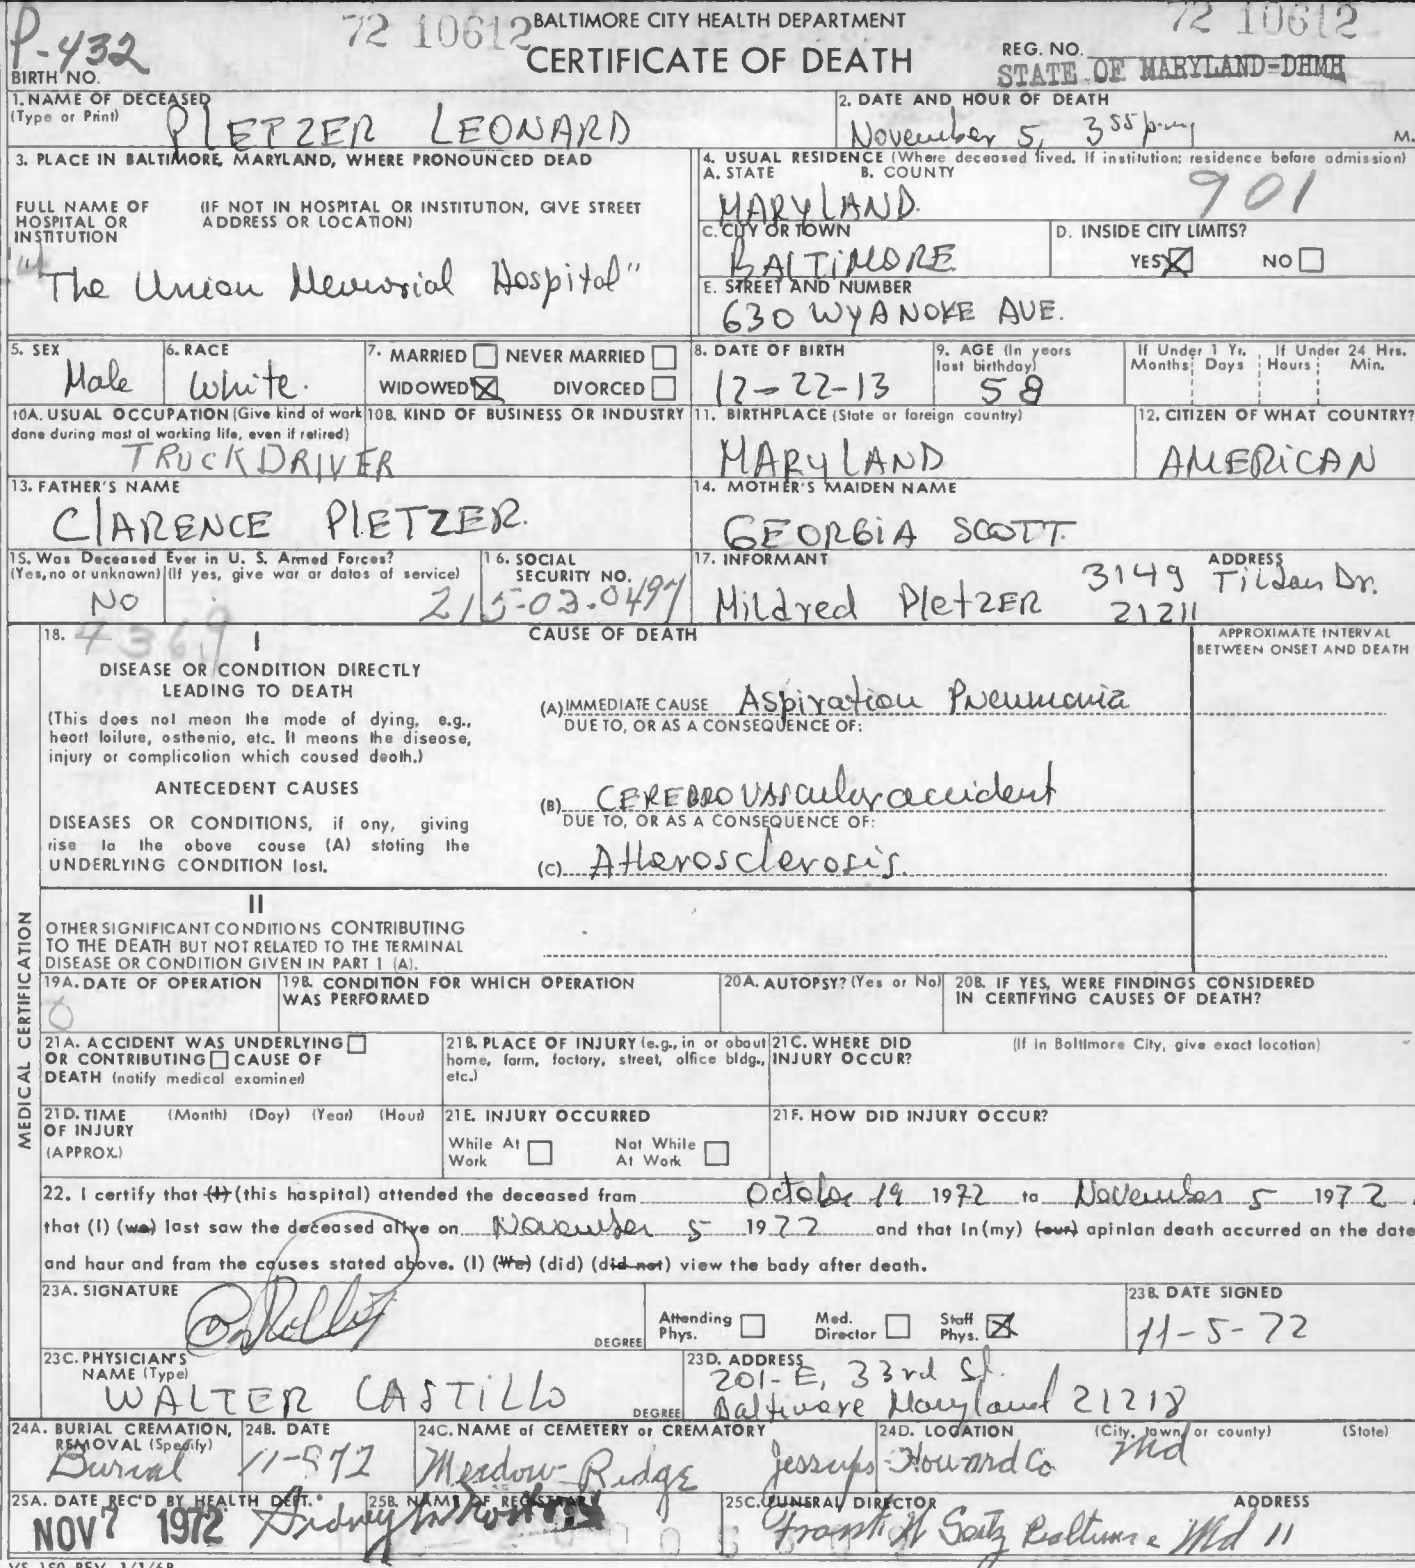 P-432
72 10612
BALTIMORE CITY HEALTH DEPARTMENT
72 10612
CERTIFICATE OF DEATH
REG. NO.
STATE OF MARYLAND-DHMH
BIRTH NO.
1. NAME OF DECEASED
(Type or Print)
PLETZER LEONARD
2. DATE AND HOUR OF DEATH
November 5, 3 55 p.m. M.
3. PLACE IN BALTIMORE, MARYLAND, WHERE PRONOUNCED DEAD
FULL NAME OF HOSPITAL OR INSTITUTION
(IF NOT IN HOSPITAL OR INSTITUTION, GIVE STREET ADDRESS OR LOCATION)
"The Union Memorial Hospital"
4. USUAL RESIDENCE (Where deceased lived. If institution: residence before admission)
A. STATE B. COUNTY
901
MARYLAND.
C. CITY OR TOWN
BALTIMORE
D. INSIDE CITY LIMITS?
YES NO
E. STREET AND NUMBER
630 WYANOKE AVE.
5. SEX
Male
6. RACE
White.
7. MARRIED NEVER MARRIED
WIDOWED DIVORCED
8. DATE OF BIRTH
12-22-13
9. AGE (In years last birthday)
58
If Under 1 Yr. If Under 24 Hrs.
Months Days Hours Min.
10A. USUAL OCCUPATION (Give kind of work done during most of working life, even if retired)
TRUCK DRIVER
10B. KIND OF BUSINESS OR INDUSTRY
11. BIRTHPLACE (State or foreign country)
MARYLAND
12. CITIZEN OF WHAT COUNTRY?
AMERICAN
13. FATHER'S NAME
CLARENCE PLETZER.
14. MOTHER'S MAIDEN NAME
GEORGIA SCOTT.
15. Was Deceased Ever in U. S. Armed Forces?
(Yes, no or unknown) (If yes, give war or dates of service)
No
16. SOCIAL SECURITY NO.
215-03-0497
17. INFORMANT ADDRESS
Mildred PletZER 3149 Tilden Dr.
21211
MEDICAL CERTIFICATION
18. 436.9
I
DISEASE OR CONDITION DIRECTLY LEADING TO DEATH
(This does not mean the mode of dying, e.g., heart failure, asthenia, etc. It means the disease, injury or complication which caused death.)
ANTECEDENT CAUSES
DISEASES OR CONDITIONS, if any, giving rise to the above cause (A) stating the UNDERLYING CONDITION last.
CAUSE OF DEATH
APPROXIMATE INTERVAL BETWEEN ONSET AND DEATH
(A) IMMEDIATE CAUSE Aspiration Pneumonia
DUE TO, OR AS A CONSEQUENCE OF:
(B) CEREBROVAScular accident
DUE TO, OR AS A CONSEQUENCE OF:
(C) Atherosclerosis.
II
OTHER SIGNIFICANT CONDITIONS CONTRIBUTING TO THE DEATH BUT NOT RELATED TO THE TERMINAL DISEASE OR CONDITION GIVEN IN PART 1 (A).
19A. DATE OF OPERATION
0
19B. CONDITION FOR WHICH OPERATION WAS PERFORMED
20A. AUTOPSY? (Yes or No)
20B. IF YES, WERE FINDINGS CONSIDERED IN CERTIFYING CAUSES OF DEATH?
21A. ACCIDENT WAS UNDERLYING
OR CONTRIBUTING CAUSE OF
DEATH (notify medical examiner)
21B. PLACE OF INJURY (e.g., in or about home, farm, factory, street, office bldg., etc.)
21C. WHERE DID INJURY OCCUR? (If in Baltimore City, give exact location)
21D. TIME OF INJURY (APPROX.)
(Month) (Day) (Year) (Hour)
21E. INJURY OCCURRED
While At Work Not While At Work
21F. HOW DID INJURY OCCUR?
22. I certify that (I) (this hospital) attended the deceased from October 19 1972 to November 5 1972,
that (I) (we) last saw the deceased alive on November 5 1972 and that in (my) (our) opinion death occurred on the date
and hour and from the causes stated above. (I) (We) (did) (did not) view the body after death.
23A. SIGNATURE
DEGREE
Attending Phys. Med. Director Staff Phys.
23B. DATE SIGNED
11-5-72
23C. PHYSICIAN'S NAME (Type)
WALTER CASTILLO
DEGREE
23D. ADDRESS
201-E, 33rd St.
Baltimore Maryland 21218
24A. BURIAL CREMATION, REMOVAL (Specify)
Burial
24B. DATE
11-972
24C. NAME of CEMETERY or CREMATORY
Meadow-Ridge
24D. LOCATION (City, town, or county) (State)
Jessups-Howard Co Md
25A. DATE REC'D BY HEALTH DEPT.
NOV 7 1972
25B. NAME OF REGISTRAR
25C. FUNERAL DIRECTOR ADDRESS
Frank H Seitz Baltimore Md 11
VS 150 REV. 1/1/68